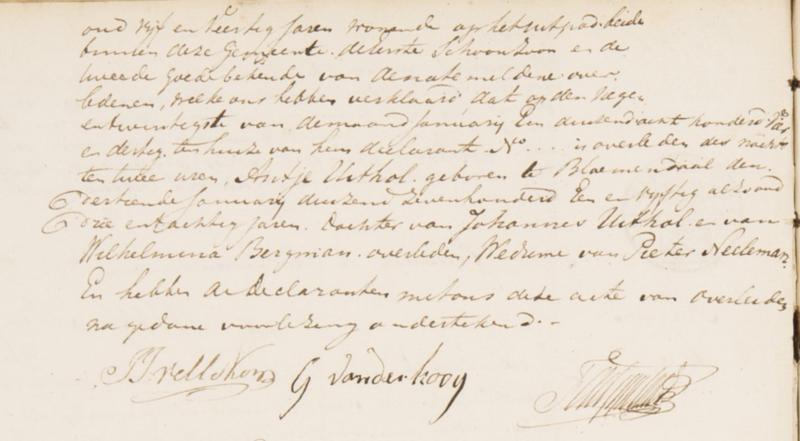 oud vijf en Veertig Jaren wonende op het uitpad beide
binnen deze Gemeente. de Eerste Schoonzoon en de
tweede goede bekende van de nate meldene over,
ledenen, welke ons hebben verklaard dat op den Nege
entwintigste van de maand January Een duizend acht honderd Vier
en dertig, ten huize van hem declarant No .... is overleden des nachts
ten twee uren, Antje Uithol. geboren te Bloemendaal den
dertiende January duizend zevenhonderd Een en vyftig alzo oud
drie en tachtig Jaren. Dochter van Johannes Uithol. en van
Wilhelmina Bergman. overleden, Weduwe van Pieter Neeleman.
En hebben de Declaranten met ons deze acte van overleiden
na gedane voorlezing onderteekend.-
G van der kooy